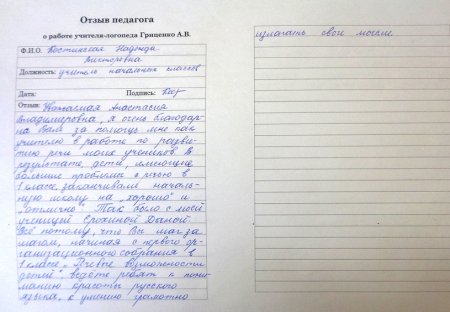 Отзыв педагога
о работе учителя-логопеда Гриценко А.В.
Ф.И.О. Костинская Надежда
Викторовна
Должность: учитель начальных классов
Дата: Подпись:
Отзыв: Уважаемая Анастасия
Владимировна, я очень благодар-
на Вам за помощь мне как
учителю в работе по разви-
тию речи моих учеников. В
результате, дети, имеющие
большие проблемы с речью в
1 классе, заканчивали началь-
ную школу на „хорошо" и
„отлично". Так было с моей
ученицей Ерохиной Дианой.
Всё потому, что Вы шаг за
шагом, начиная с первого ор-
ганизационного собрания в
1 классе „Речевые возможности
детей", ведёте ребят к пони-
манию красоты русского
языка, к умению грамотно
излагать свои мысли